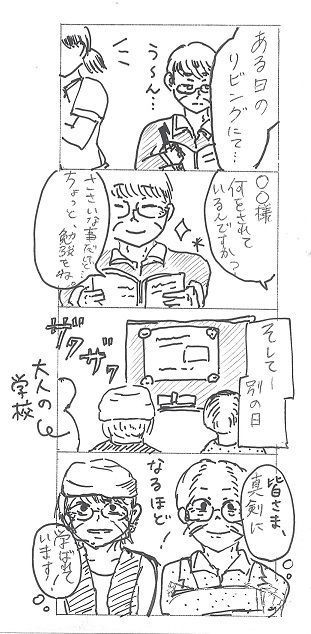 ある日の
リビングにて…
うーん…
○○様
何をされて
いるんですか?
ささいな事だけど…
ちょっと、勉強をね。
そしてー
別の日
ザワザワ
大人の
学校
皆さま、
真剣に
なるほど!
学ばれて
います!